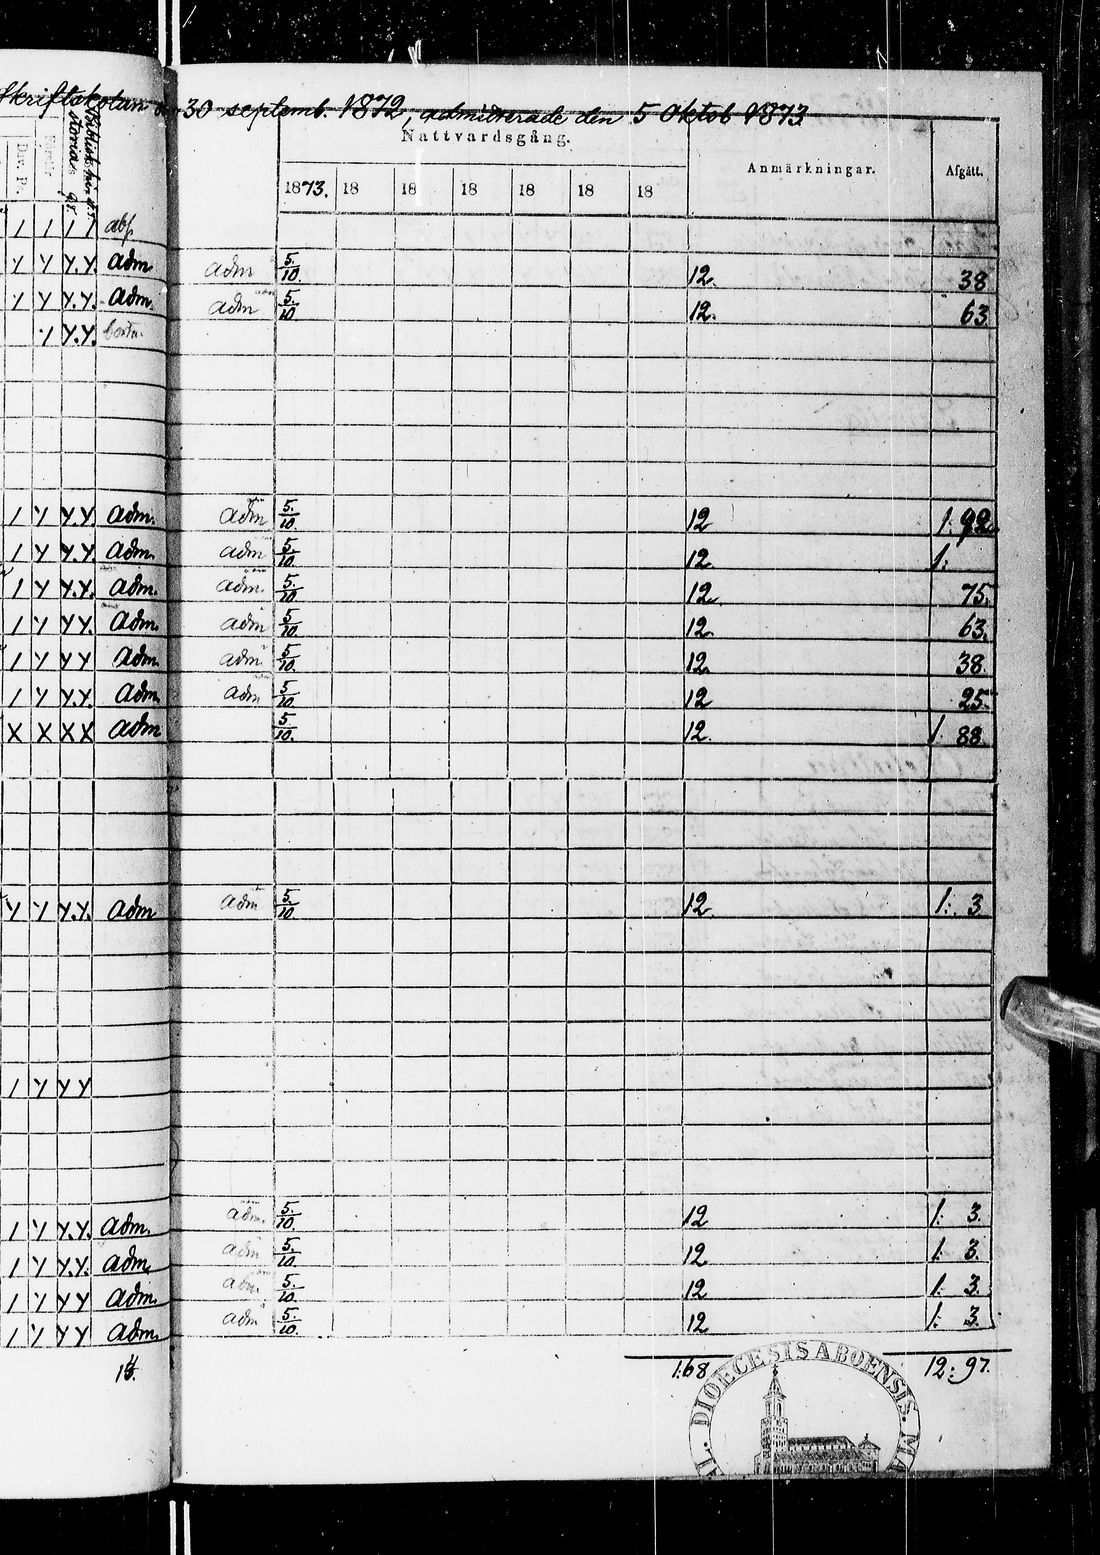 Skriftskolan den 30 septemb. 1872, admitterade den 5 Oktob 1873
Nattvardsgång.
Anmärkningar. Afgått.
Dav. Ps.
1873. 18 18 18 18 18 18
1 1 1 1 abs
Y Y Y.Y. adm. adm 5/10. 12. 38
1 Y Y.Y. adm. adm 5/10 12. 63.
1 Y.Y.
1 Y Y.Y adm. adm 5/10. 12 1: 92.
1 Y Y.Y. adm. adm 5/10. 12. 1:
1 Y Y.Y. adm. adm. 5/10. 12. 75.
1 Y Y Y. adm. adm 5/10. 12. 63.
1 Y Y Y adm. adm. 5/10. 12 38.
1 Y Y.Y adm. adm 5/10. 12 25.
X X X X adm 5/10. 12. 1. 88.
Y Y Y.Y. adm adm 5/10. 12. 1: 3.
1 Y Y Y
1 Y Y.Y. adm. adm. 5/10. 12 1: 3.
1 Y Y.Y. adm. adm 5/10. 12 1: 3.
1 Y Y Y adm. adm. 5/10. 12 1: 3.
1 Y Y Y adm. adm 5/10. 12 1: 3.
14. 168 12: 97.
DIOECESIS ABOENSIS. MA